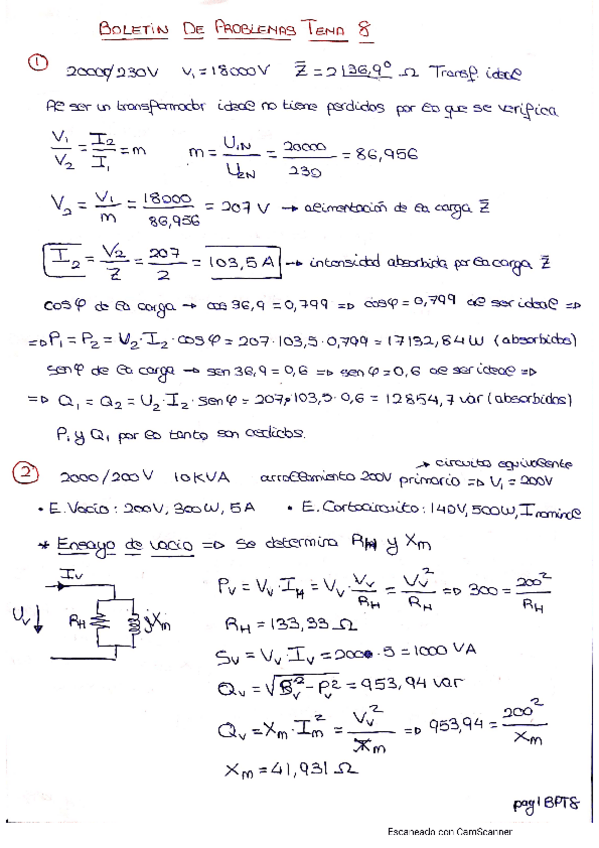 BOLETIN DE PROBLEMAS TEMA 8
① 20000/230V V₁ = 18000V Z̄ = 2∠36,9° Ω Transf. ideal
Al ser un transformador ideal no tiene perdidas por lo que se verifica
V₁/V₂ = I₂/I₁ = m m = U₁N/U₂N = 20000/230 = 86,956
V₂ = V₁/m = 18000/86,956 = 207 V → alimentación de la carga Z̄
I₂ = V₂/Z = 207/2 = 103,5 A → intensidad absorbida por la carga Z̄
cos φ de la carga → cos 36,9 = 0,799 => cos φ = 0,799 al ser ideal =>
=> P₁ = P₂ = V₂·I₂·cos φ = 207·103,5·0,799 = 17132,84 W (absorbidos)
sen φ de la carga → sen 36,9 = 0,6 => sen φ = 0,6 al ser ideal =>
=> Q₁ = Q₂ = U₂·I₂·sen φ = 207·103,5·0,6 = 12854,7 var (absorbidos)
P₁ y Q₁ por lo tanto son cedidos.
→ circuito equivalente
② 2000/200V 10KVA arrollamiento 200V primario => V₁ = 200V
• E. Vacio: 200V, 300W, 5A • E. Cortocircuito: 140V, 500W, I nominal
* Ensayo de vacio => se determina RH y Xm
Iv
Uv RH jXm
Pv = Vv·IH = Vv·Vv/RH = Vv²/RH => 300 = 200²/RH
RH = 133,33 Ω
Sv = Vv·Iv = 200·5 = 1000 VA
Qv = √(Sv² - Pv²) = 953,94 var
Qv = Xm·Im² = Vv²/Xm => 953,94 = 200²/Xm
Xm = 41,931 Ω
pag 1 BPT8
Escaneado con CamScanner